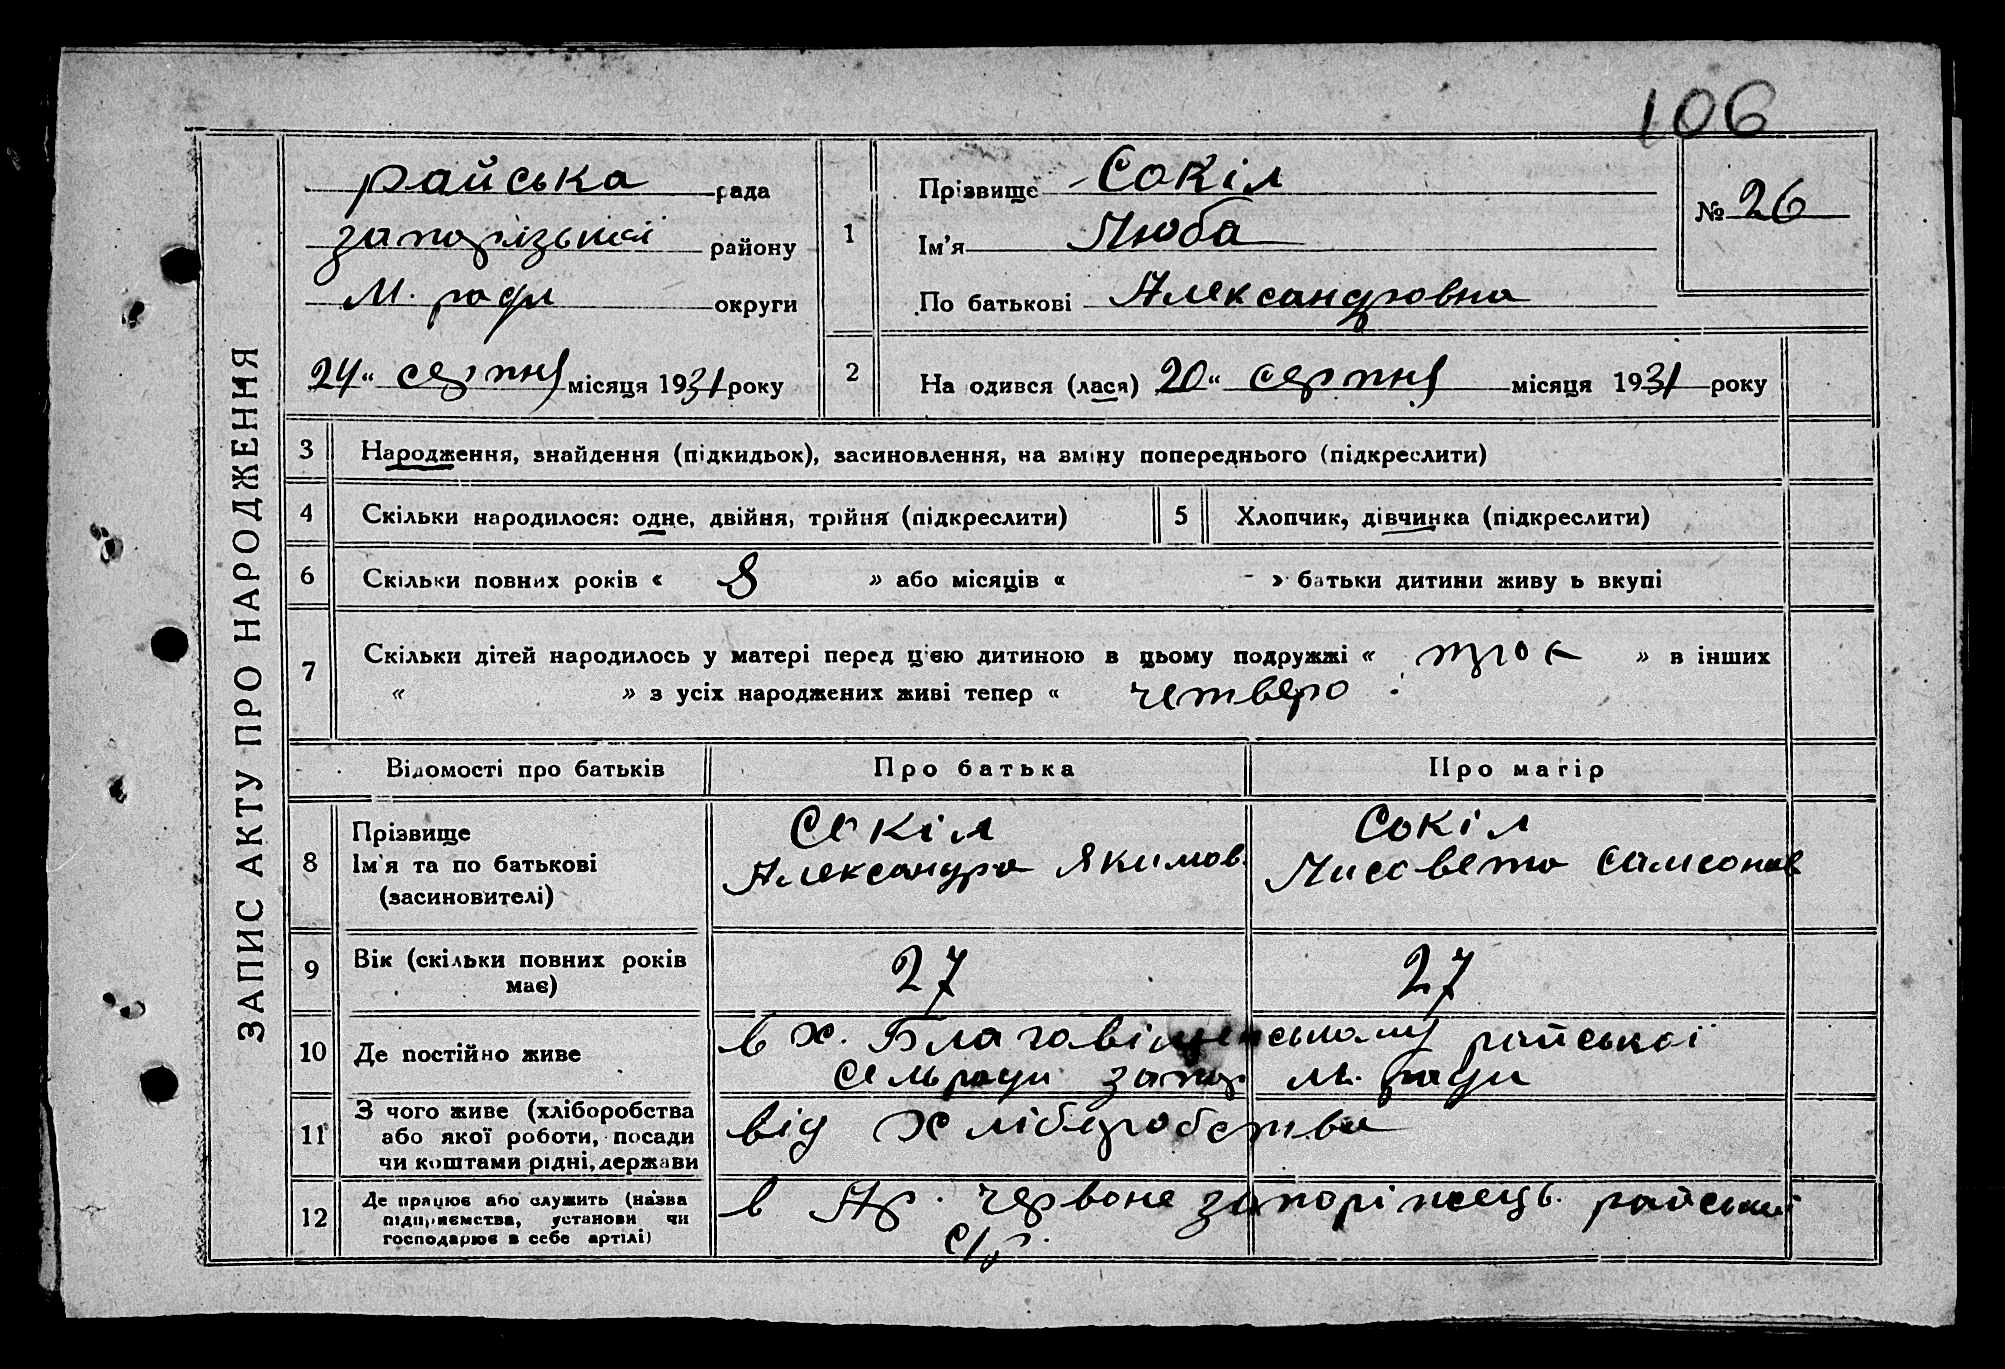 106
ЗАПИС АКТУ ПРО НАРОДЖЕННЯ
райська рада
запорізької району
М. ради округи
24 " серпня місяця 1931 року
1
Прізвище Сокіл
Ім'я Люба
По батькові Александровна
№ 26
2
На одився (лася) 20 " серпня місяця 1931 року
3 Народження, знайдення (підкидьок), засиновлення, на зміну попереднього (підкреслити)
4 Скільки народилося: одне, двійня, трійня (підкреслити) 5 Хлопчик, дівчинка (підкреслити)
6 Скільки повних років « 8 » або місяців « - » батьки дитини живу ь вкупі
7 Скільки дітей народилось у матері перед ц'єю дитиною в цьому подружжі « троє » в інших
« » з усіх народжених живі тепер « четверо
Відомості про батьків Про батька Про матір
8 Прізвище Ім'я та по батькові (засиновителі)
Сокіл
Александра Якимов.
Сокіл
Лисовета Самсонов
9 Вік (скільки повних років має) 27 27
10 Де постійно живе
в х. Благовіщенському райської
сільради запор. М. ради
11 З чого живе (хліборобства
або якої роботи, посади
чи коштами рідні, держави
від хліборобства
12 Де працює або служить (назва
підприємства, установи чи
господарює в себе артілі)
в Ар. червоне запоріжець. райської
с/р.